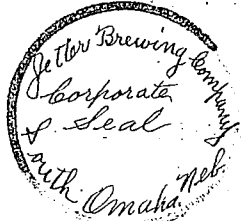 Jetter Brewing Company
Corporate
Seal
South Omaha, Neb.